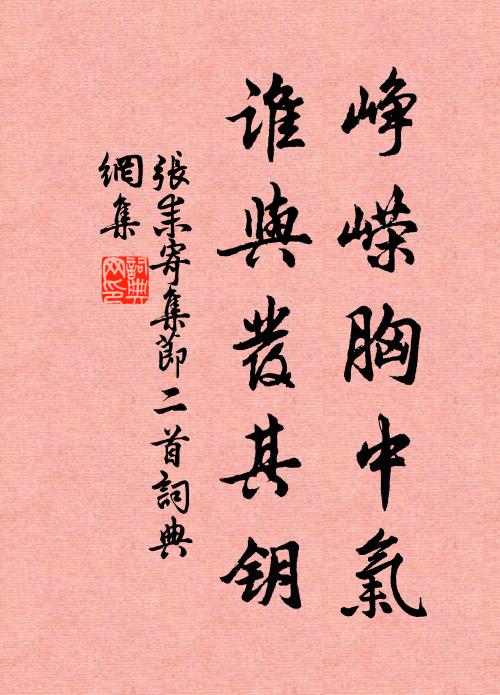 峥嵘胸中氣
誰與發其钥
張耒寄集節二首詞典
網集
詞典網印